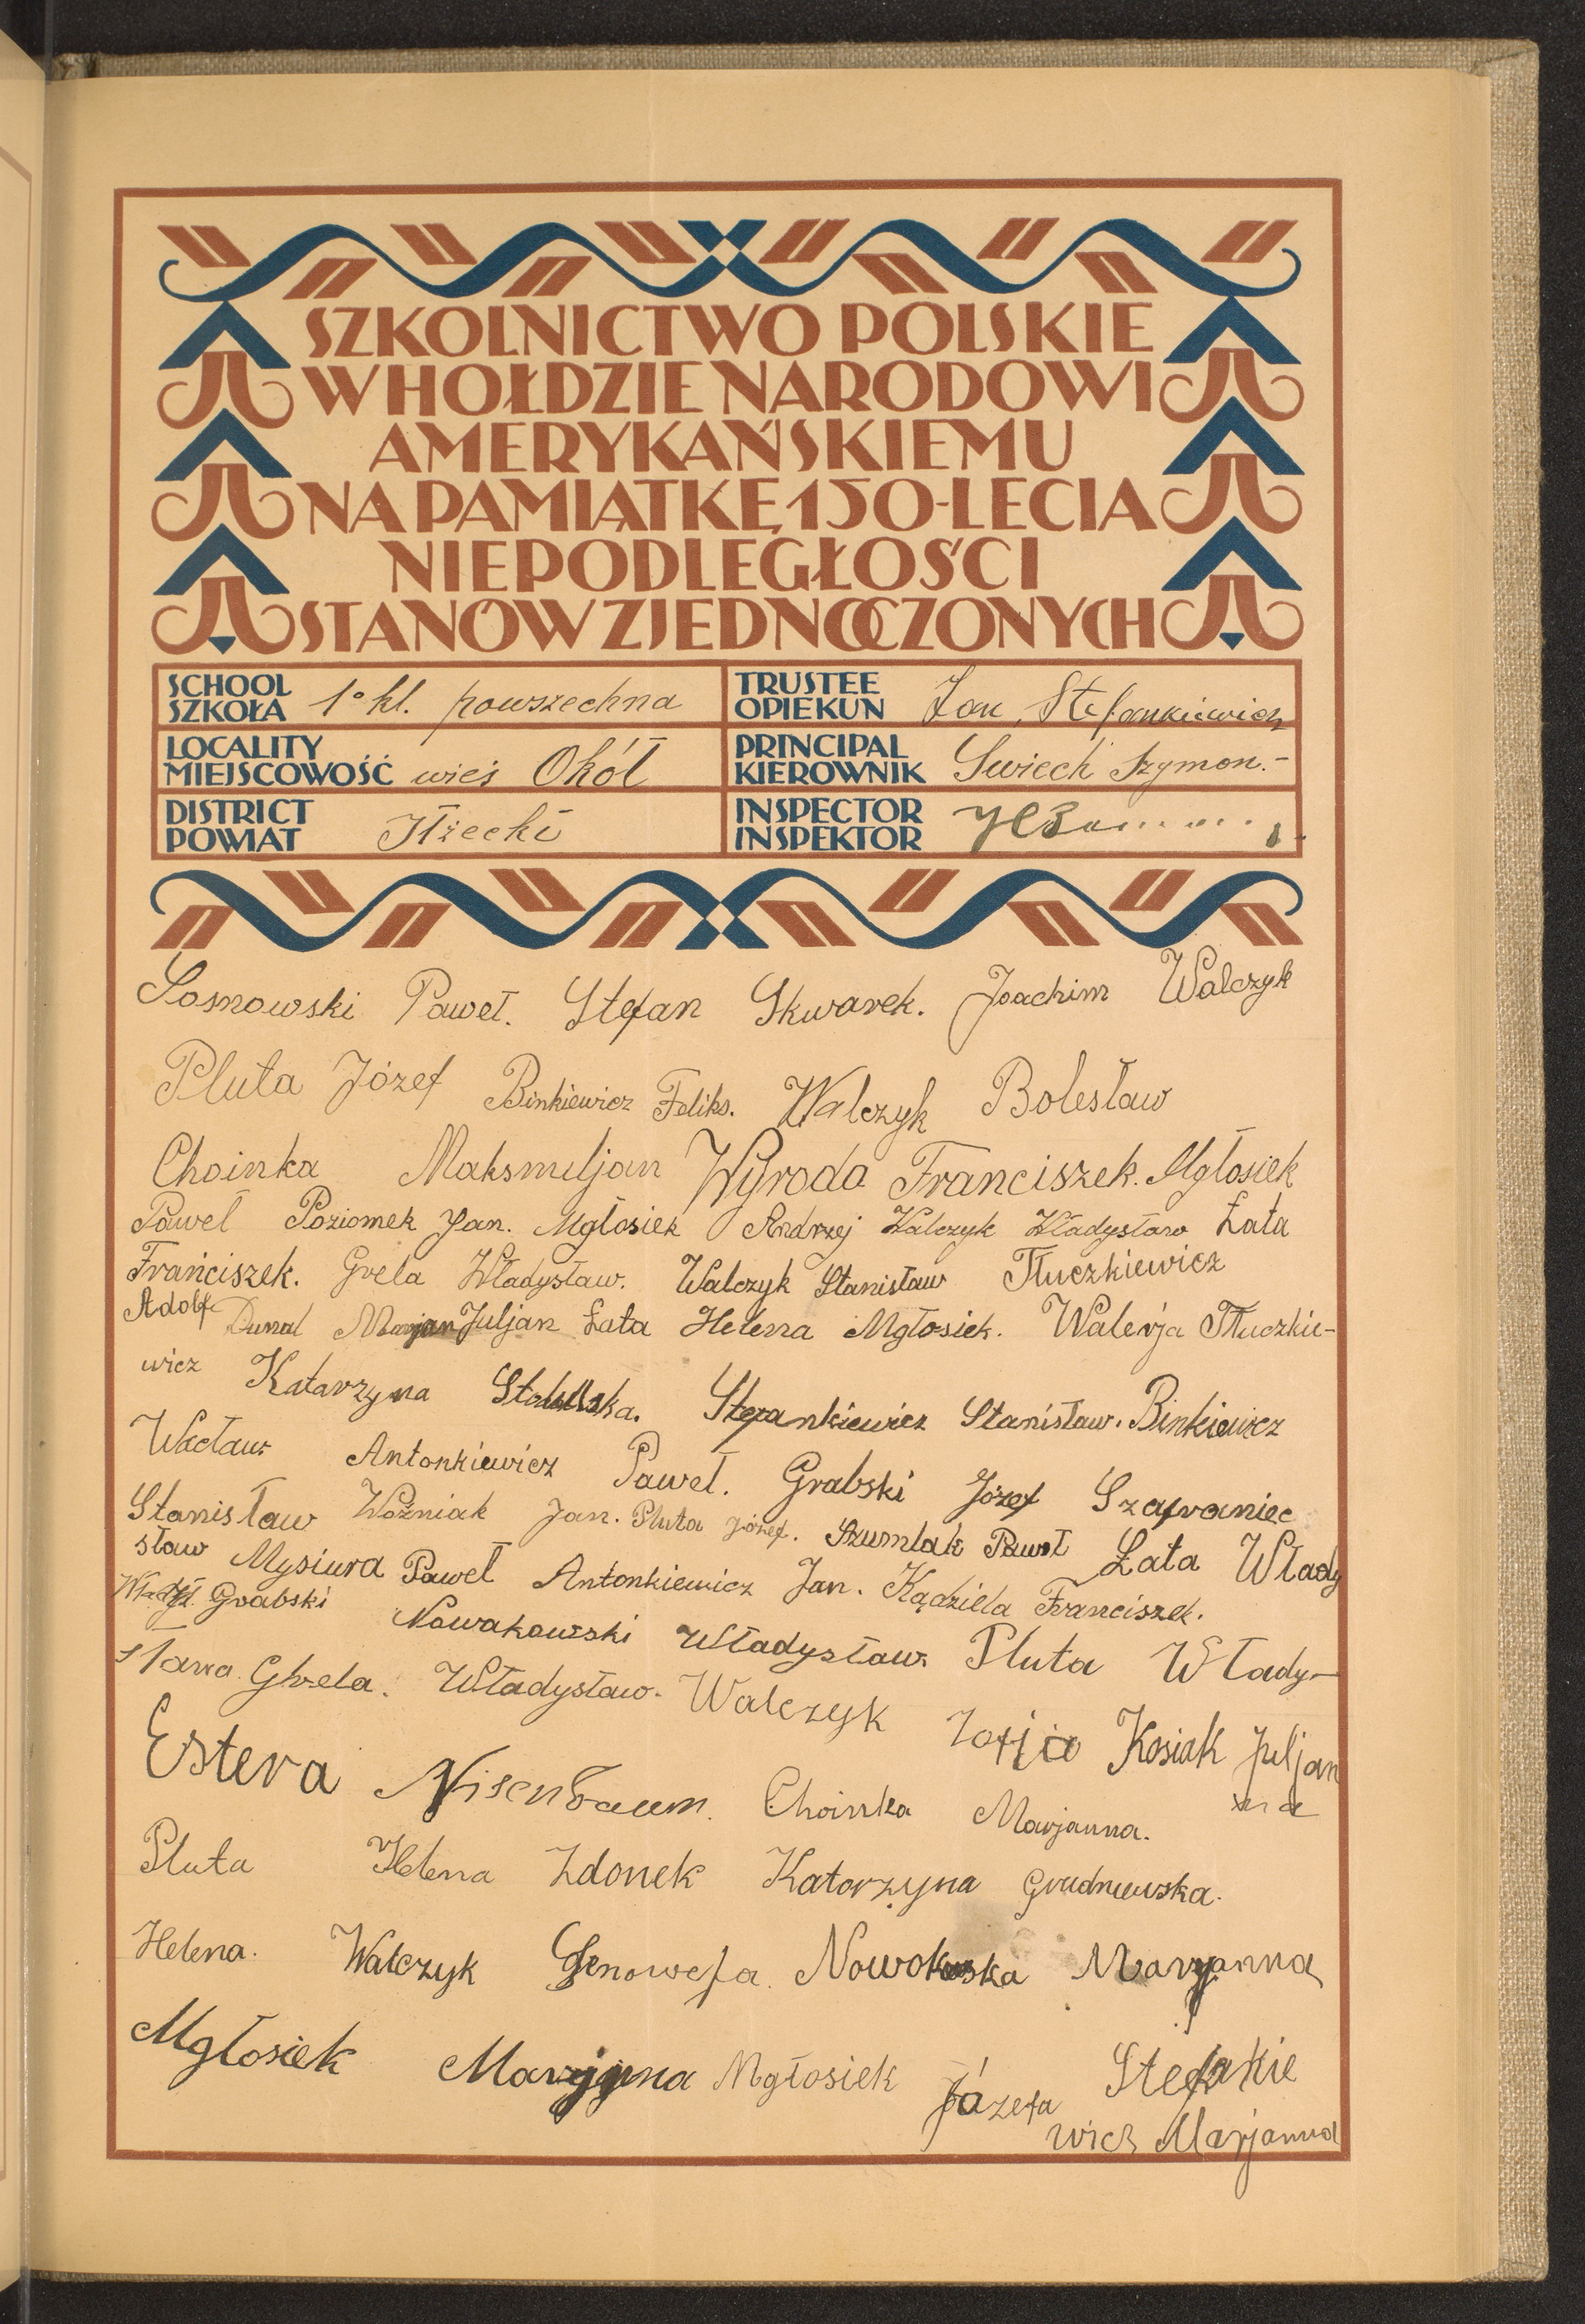 SZKOLNICTWO POLSKIE
W HOŁDZIE NARODOWI
AMERYKAŃSKIEMU
NA PAMIĄTKĘ 150-LECIA
NIEPODLEGŁOŚCI
STANÓW ZJEDNOCZONYCH
SCHOOL SZKOŁA 1° kl. powszechna
TRUSTEE OPIEKUN Jan Stefankiewicz
LOCALITY MIEJSCOWOŚĆ wieś Okół
PRINCIPAL KIEROWNIK Świech Szymon.-
DISTRICT POWIAT Iłżecki
INSPECTOR INSPEKTOR
Sosnowski Paweł. Stefan Skwarek. Joachim Walczyk
Pluta Józef Binkiewicz Feliks. Walczyk Bolesław
Choinka Maksmiljan Wyroda Franciszek. Mgłosiek
Paweł Poziomek Jan. Mgłosiek Andrzej Walczyk Władysław Łata
Franciszek. Grela Władysław. Walczyk Stanisław Tłuczkiewicz
Adolf Dunal Marjan Juljan Łata Helena Mgłosiek. Walerja Tłuczkie-
wicz Katarzyna Stefankiewicz Stanisław. Binkiewicz
Wacław Antonkiewicz Paweł. Grabski Józef Szafraniec
Stanisław Woźniak Jan. Pluta Józef. Szumlak Paweł Łata Włady
sław Mysiura Paweł Antonkiewicz Jan. Kądziela Franciszek.
Grabski Nowakowski Władysław Pluta Włady-
sława Grela. Władysław. Walczyk Zofja Kosiak Juljan
na
Estera Nisenbaum. Choinka Marjanna.
Pluta Helena Zdonek Katarzyna Grudniewska.
Helena. Walczyk Genowefa. Nowokowska Maryanna
Mgłosiek Maryjna Mgłosiek Józefa Stefakie
wicz Marjanna